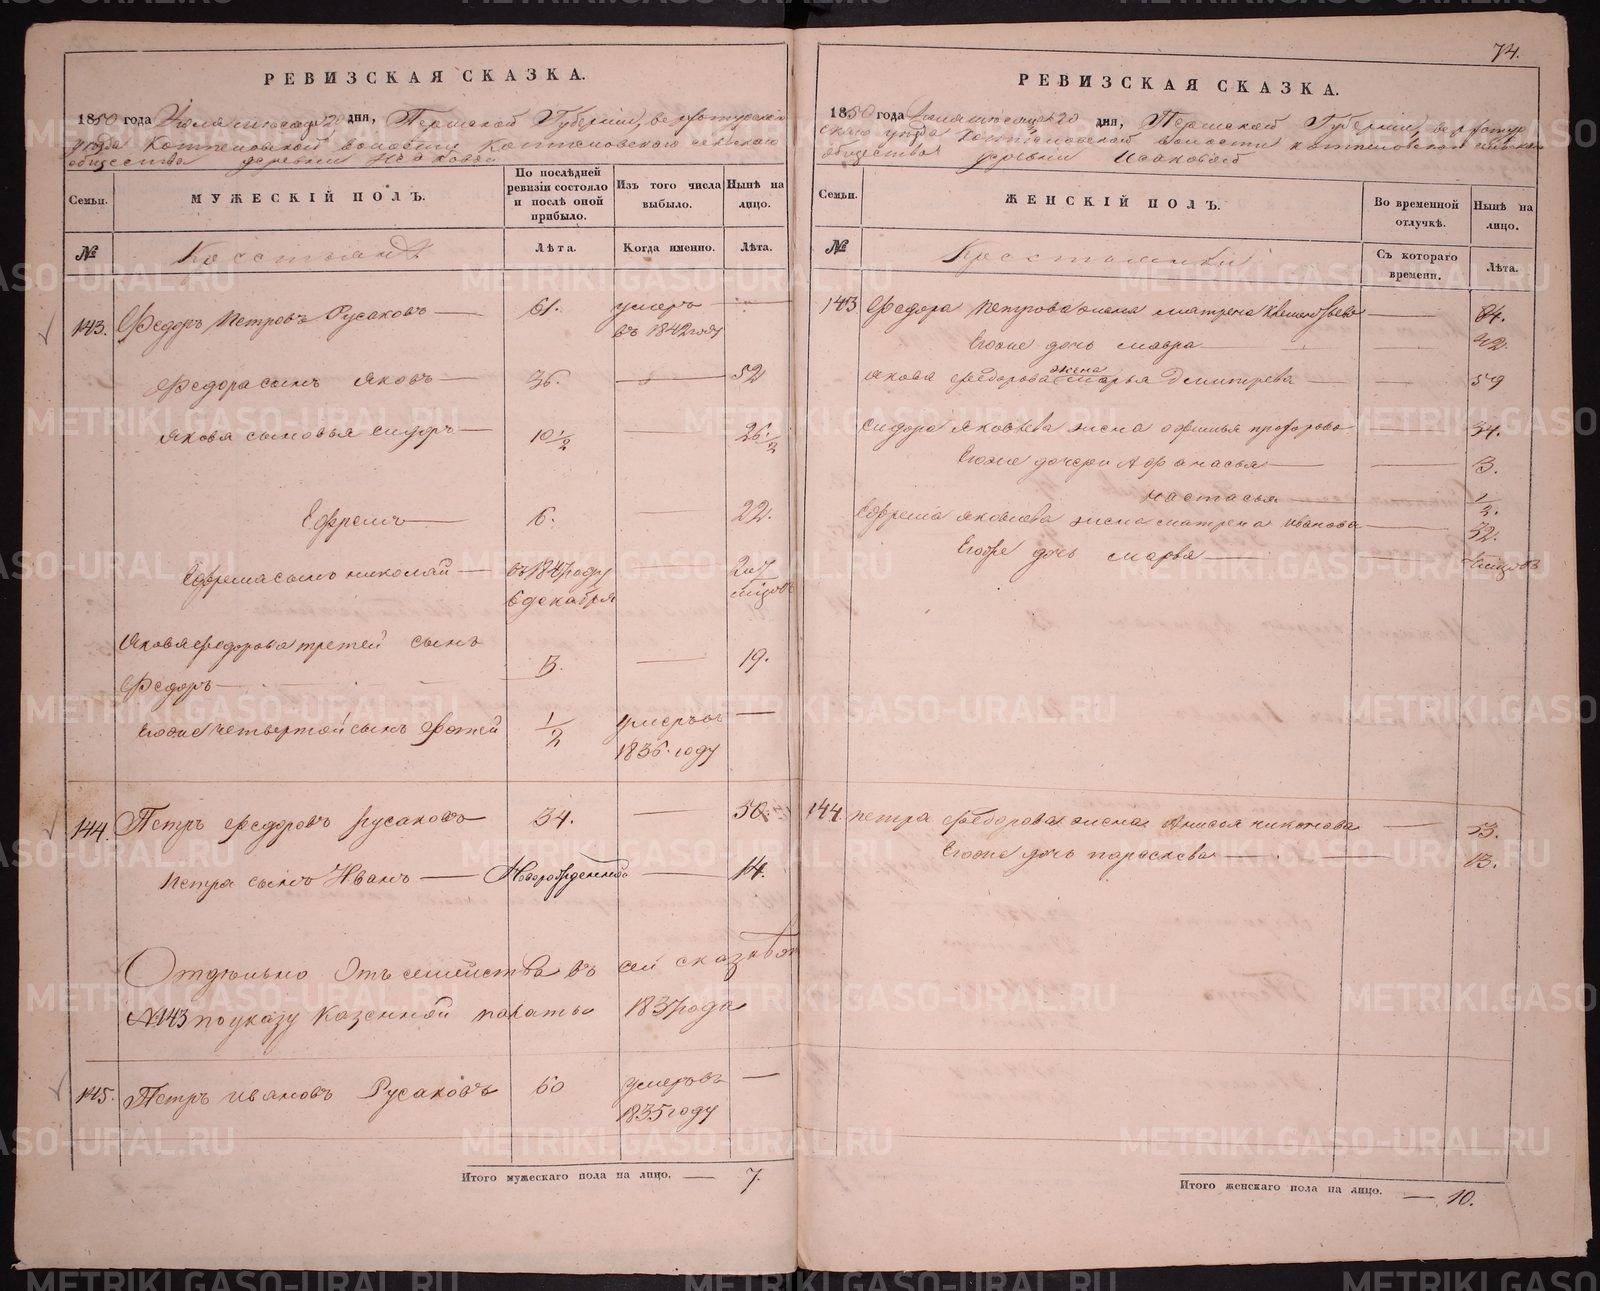 РЕВИЗСКАЯ СКАЗКА.
1850 года Июля месяца 20 дня, Пермской Губернии, Верхотурска
уезда Коптеловской волости Коптеловскаго сельскаго
общества деревни Исаковой
Семьи.
МУЖЕСКІЙ ПОЛЪ.
По послѣдней ревизіи состояло и послѣ оной прибыло.
Изъ того числа выбыло.
Нынѣ на лицо.
№
Крестьяне
Лѣта.
Когда именно.
Лѣта.
143. Федоръ Петровъ Русаковъ — 61. умеръ въ 1842 году —
Федора сынъ Яковъ — 36. — 52
Якова сыновья Сидоръ — 10 1/2 — 26 1/2
Ефремъ — 6. — 22.
Ефрема сынъ Николай — въ 1847 году 6 декабря — 2 и 7 месцовъ
Якова Федорова третей сынъ
Федоръ — 3. — 19.
Егоже четвертой сынъ — 1/2 умеръ въ 1836 году —
144. Петръ Федоровъ Русаковъ 34. — 50.
Петра сынъ Иванъ — Новорожденной — 14.
Отдельно отъ семейства въ сей сказке подъ
№ 143 по указу Казенной палаты 1837 года
145. Петръ Ивановъ Русаковъ 60 умеръ въ 1835 году —
Итого мужескаго пола на лицо. — 7.
74.
РЕВИЗСКАЯ СКАЗКА.
1850 года Июля месяца 20 дня, Пермской Губернии, Верхотур
скаго уезда Коптеловской волости Коптеловскаго сельскаго
общества деревни Исаковой
Семьи.
ЖЕНСКІЙ ПОЛЪ.
Во временной отлучкѣ.
Нынѣ на лицо.
№
Крестьянки
Съ котораго времени.
Лѣта.
143 Федора Петрова жена Матрена — 84.
Егоже дочь Мавра — 42.
Якова Федорова жена Марья Дмитрева — 59
Сидора Яковлева жена Афимья — 34.
Егоже дочери Афанасья — 3.
Настасья — 1/2.
Ефрема Яковлева жена Матрена Иванова — 32.
Егоже дочь Марья —
144. Петра Федорова жена Анисья Никонова — 53.
Егоже дочь Парасковья — 13.
Итого женскаго пола на лицо. — 10.
METRIKI.GASO-URAL.RU